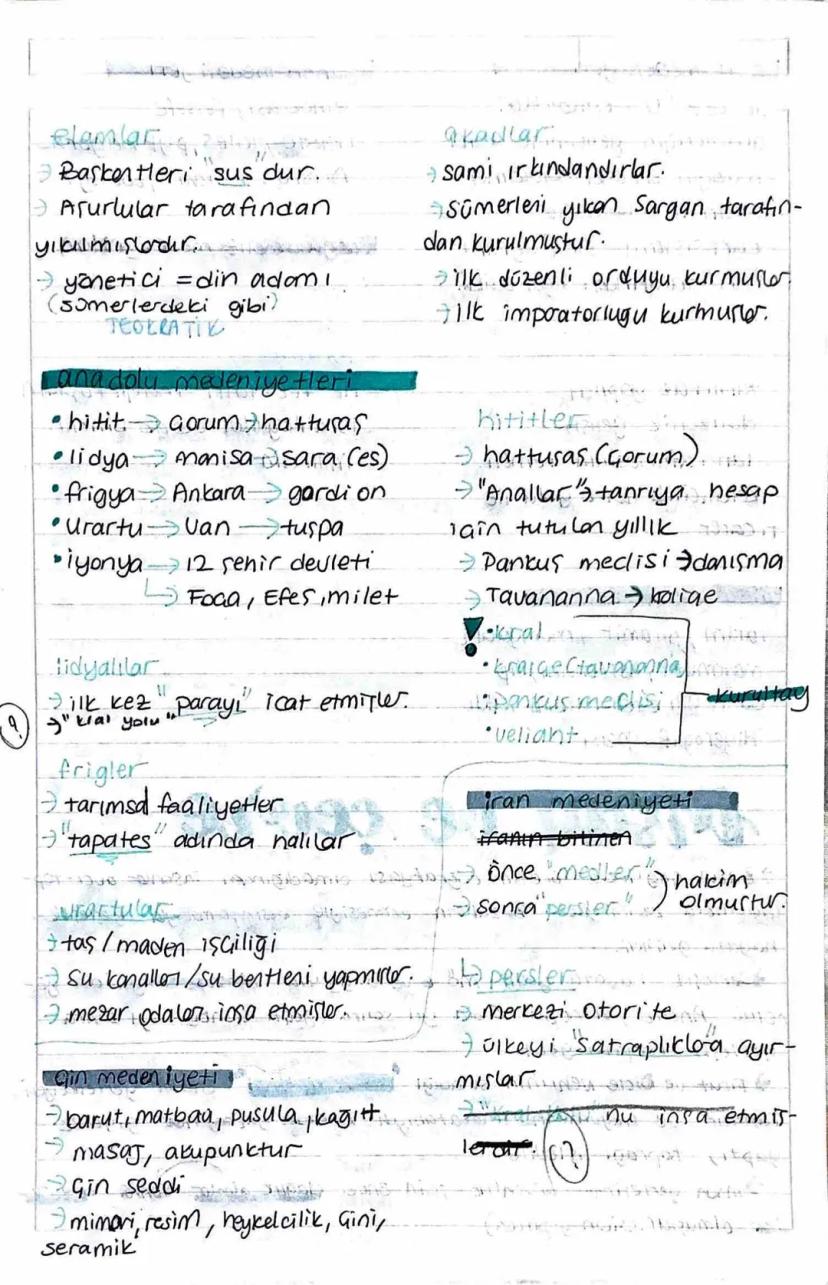 elamlar
→ Başkentleri "sus" dur.
→ Asurlular tarafından
yıkılmışlardır.
→ yönetici = din adamı
(sümerlerdeki gibi)
TEOKRATİK
akadlar
→ sami ırkındandırlar.
→ sümerleri yıkan Sargan tarafın-
dan kurulmuştur.
→ ilk düzenli orduyu kurmuşlar.
→ ilk imparatorluğu kurmuşlar.
anadolu medeniyetleri
• hitit → Çorum → hattuşaş
• lidya → manisa → sard (es)
• frigya → Ankara → gordion
• Urartu → Van → tuşpa
• iyonya → 12 şehir devleti
↳ Foça, Efes, milet
hititler
→ hattuşaş (Çorum)
→ "Anallar" → tanrıya hesap
için tutulan yıllık
→ Pankuş meclisi → danışma
→ Tavananna → kraliçe
! • kral
• kraliçe (tavananna)
• pankuş meclisi
• veliaht
kurultay
lidyalılar
→ ilk kez "parayı" icat etmişler.
? → "kral yolu"
frigler
→ tarımsal faaliyetler
→ "tapates" adında halılar
urartular
→ taş / maden işçiliği
→ su kanalları / su bentleri yapmışlar.
→ mezar odaları inşa etmişler.
iran medeniyeti
iranın bitinen
→ önce "medler"
→ sonra "persler"
hakim
olmuştur.
↳ persler
→ merkezi otorite
→ ülkeyi "satraplıklara" ayır-
mışlar
→ "kral yolu" nu inşa etmiş-
lerdir. (?)
çin medeniyeti
→ barut, matbaa, pusula, kağıt
→ masaj, akupunktur
→ Çin seddi
→ mimari, resim, heykelcilik, Çini,
seramik